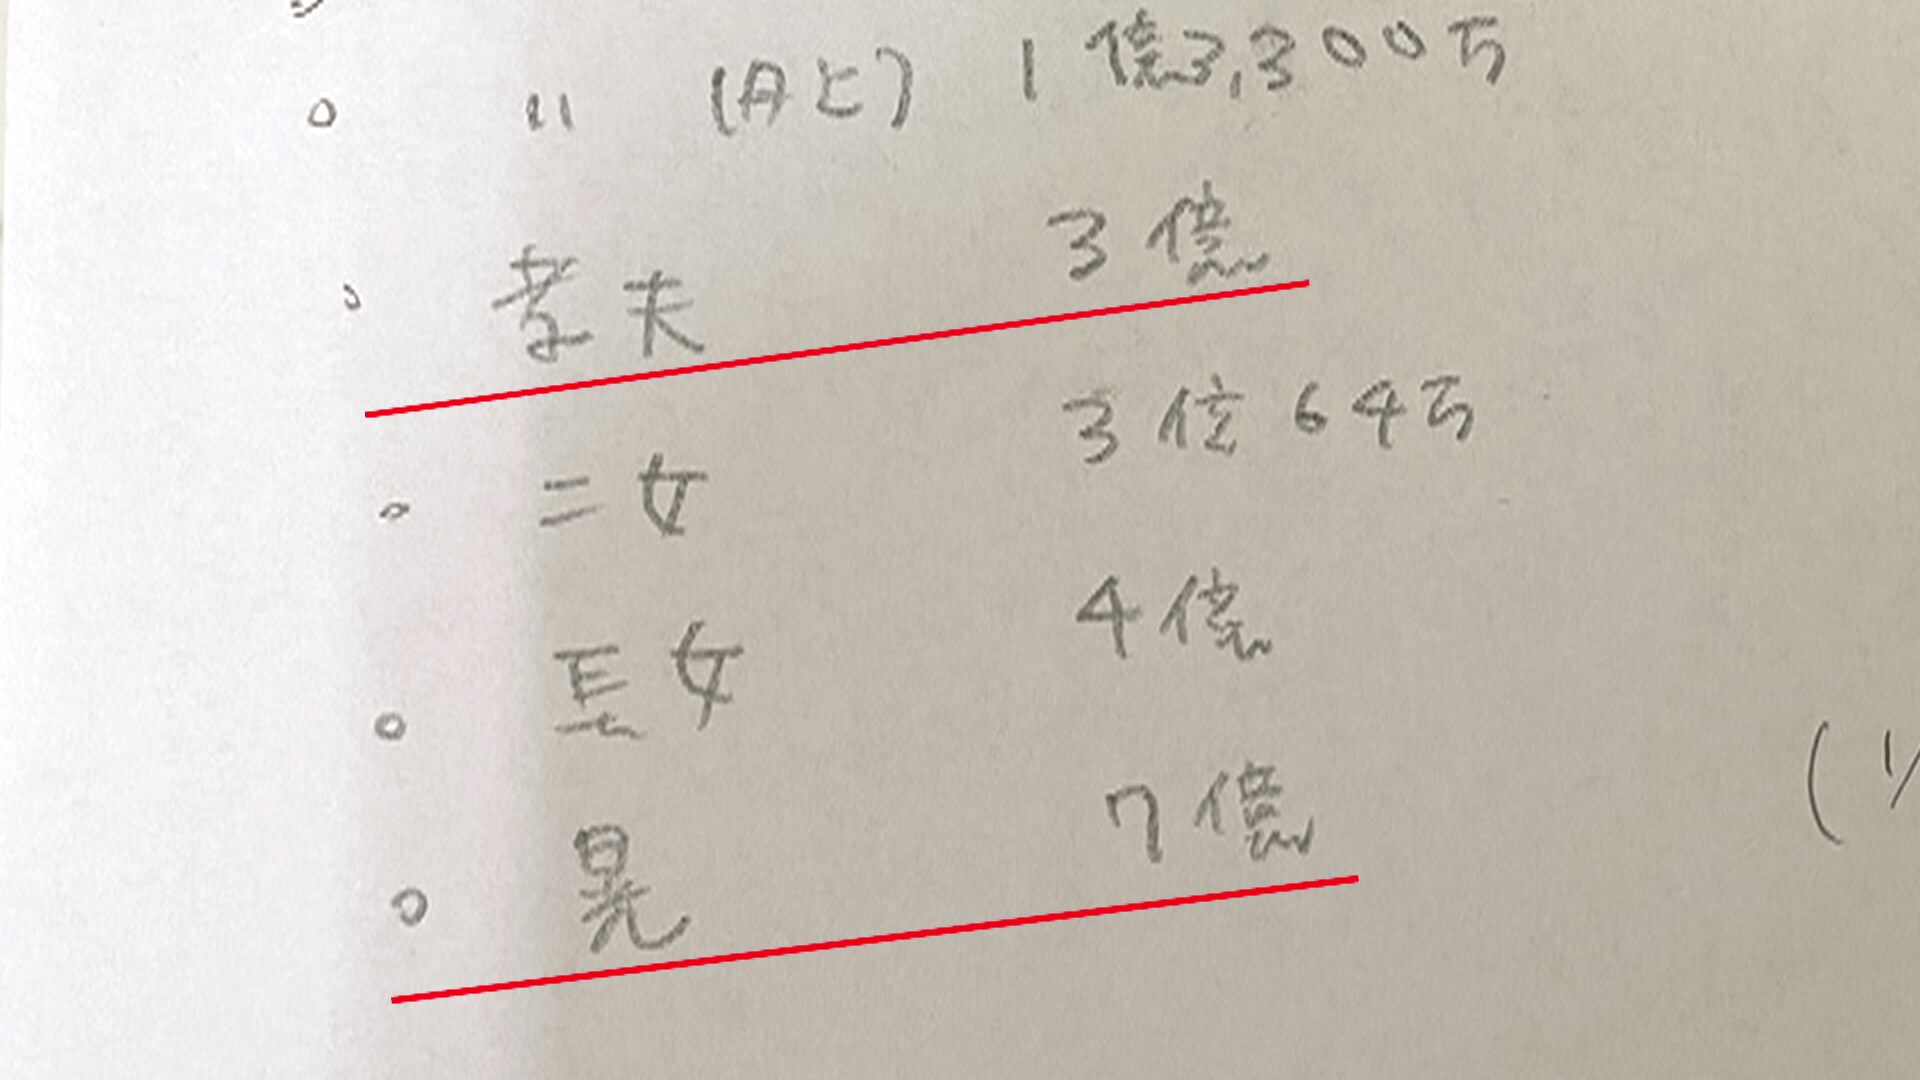 〃 (母と) 1億3,300万
孝夫 3億
二女 3億64万
三女 4億
晃 7億
(1/